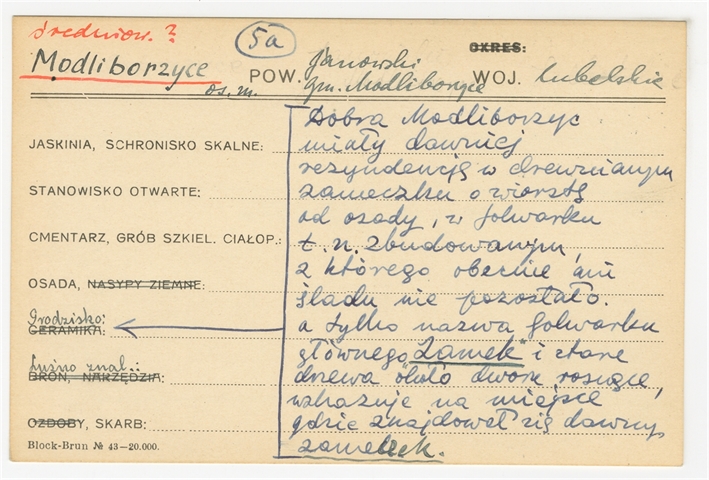 średniow. ?
5a
OKRES:
Modliborzyce
os. m.
POW. Janowski
gm. Modliborzyce
WOJ. Lubelskie
Dobra Modliborzyc
JASKINIA, SCHRONISKO SKALNE: miały dawniej
rezyndencję w drewnianym
STANOWISKO OTWARTE: zameczku o wiorstę
od osady, w folwarku
CMENTARZ, GRÓB SZKIEL. CIAŁOP.: t. n. zbudowanym,
z którego obecnie ani
OSADA, NASYPY ZIEMNE: śladu nie pozostało.
Grodzisko:
CERAMIKA: a tylko nazwa folwarku
głównego „Zamek" i stare
Luźno znal.:
BROŃ, NARZĘDZIA: drzewa około dworu rosnące,
wskazuje na miejsce
OZDOBY, SKARB: gdzie znajdował się dawny
zameczek.
Block-Brun № 43—20.000.